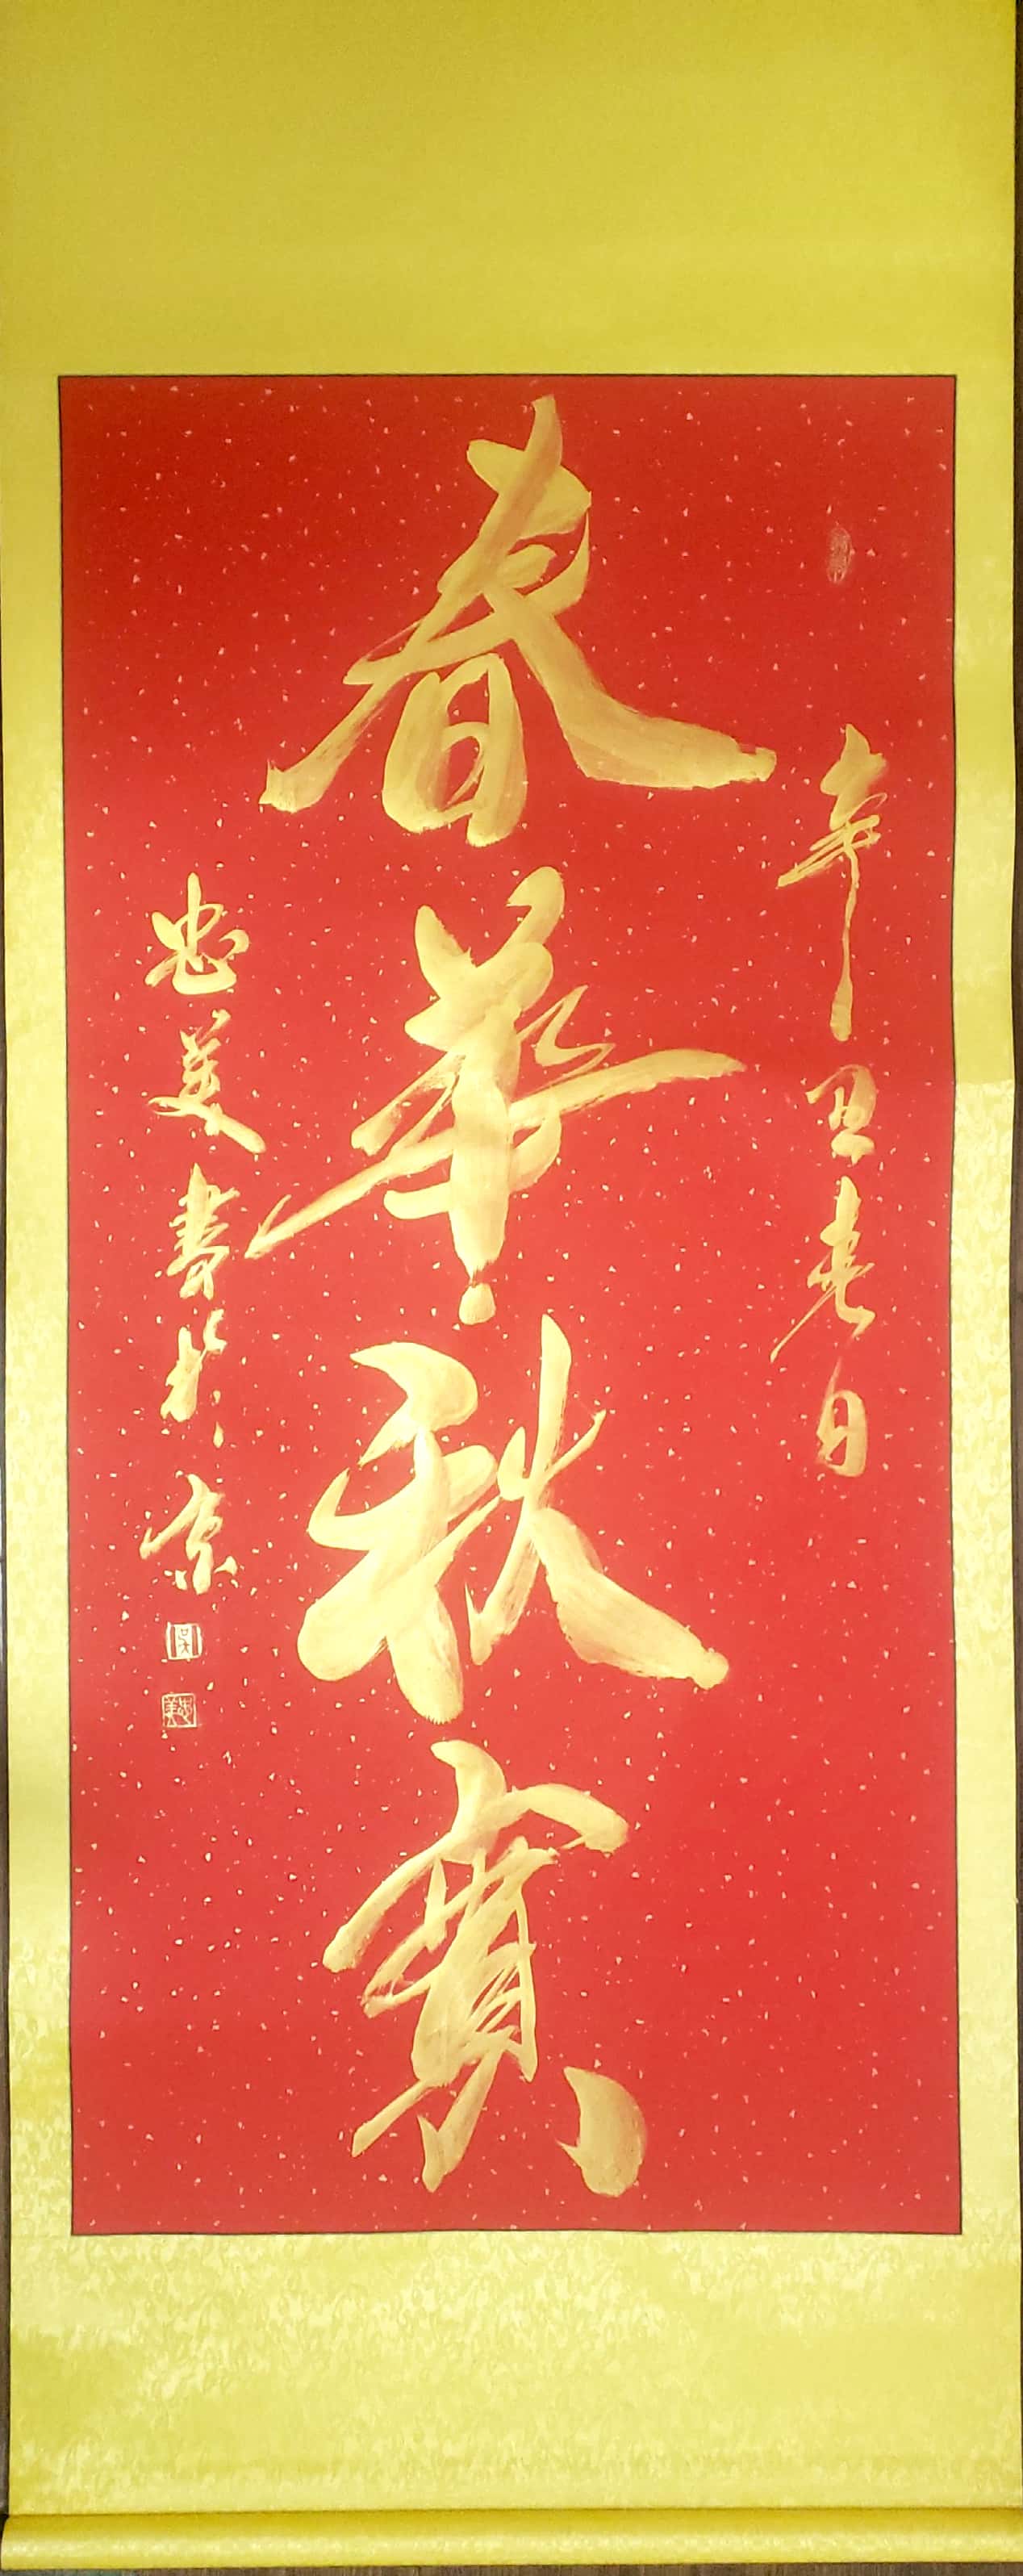 辛丑春日
春華秋實
忠義書於京